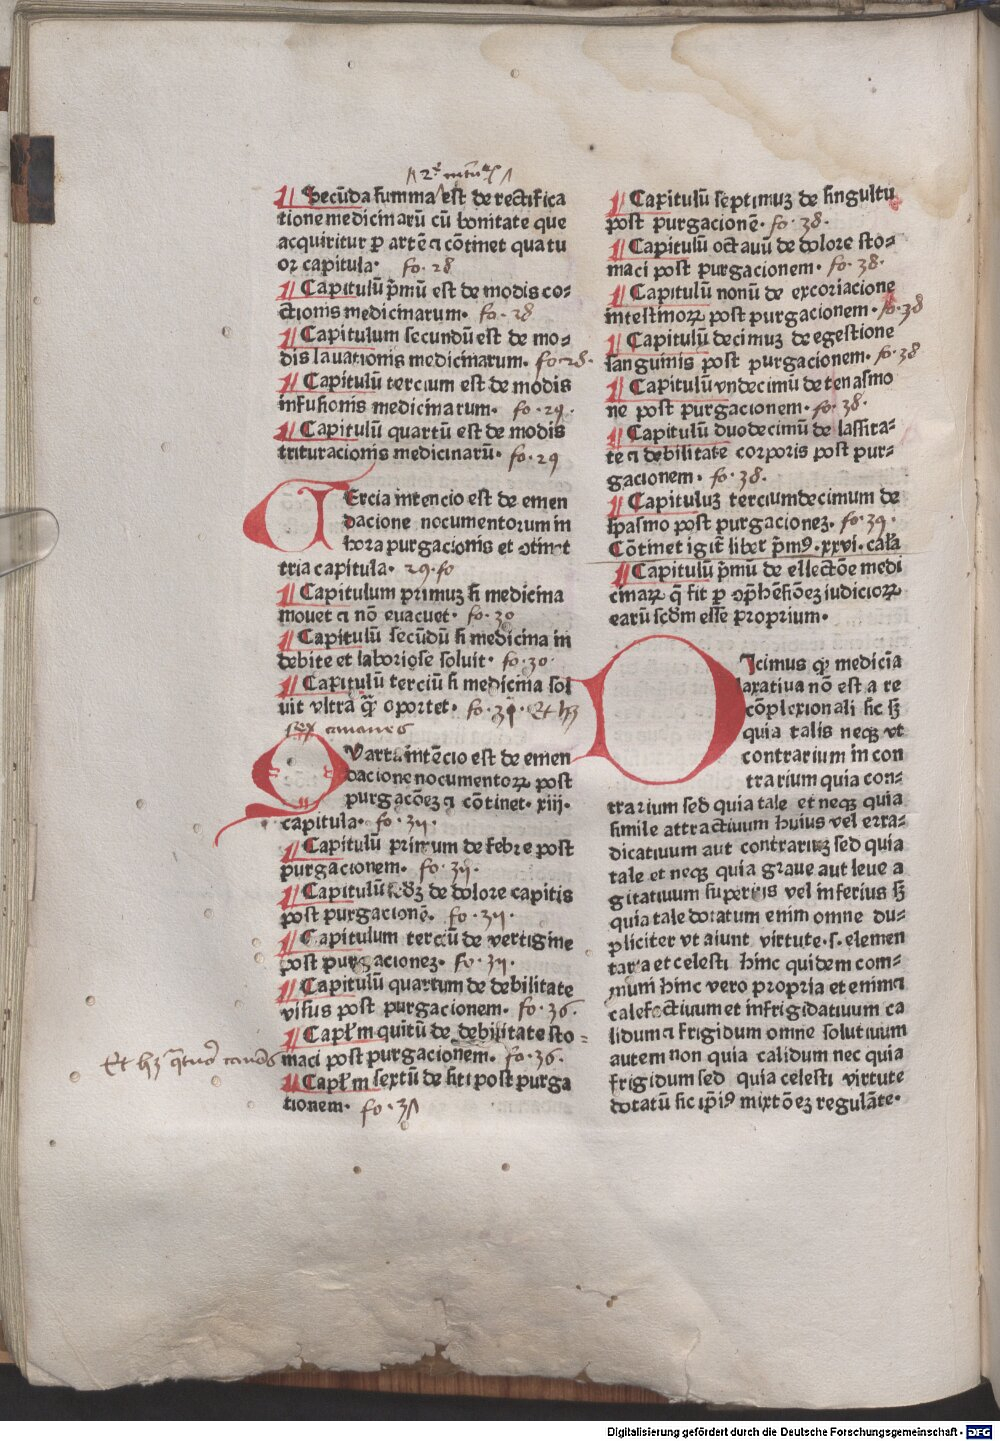 ¶ Secūda summa est de rectifica
tione medicinarū cū bonitate que
acquiritur ꝑ artē ⁊ cōtinet quatu
or capitula· fo· 28
¶ Capitulū p̄mū est de modis co-
ctionis medicinarum· fo· 28
¶ Capitulum secundū est de mo-
dis lauationis medicinarum· fo· 28·
¶ Capitulū tercium est de modis
infusionis medicinarum· fo· 29·
¶ Capitulū quartū est de modis
trituracionis medicinarū· fo· 29
TErcia intencio est de emen
dacione nocumentorum in
hora purgacionis et ↄtinet
tria capitula· 29· fo
¶ Capitulum primuꝫ si medicina
mouet ⁊ nō euacuet· fo· 30
¶ Capitulū secūdū si medicina in
debite et laboriose soluit· fo· 30·
¶ Capitulū terciū si medicina sol
uit vltra q̄ꝫ oportet· fo· 31· Et hꝫ
sex canones
Quarta intēcio est de emen
dacione nocumentoꝝ post
purgacōeꝫ ⁊ cōtinet· xiii·
capitula· fo· 32·
¶ Capitulū primum de febre post
purgacionem· fo· 32·
¶ Capitulū scdꝫ de dolore capitis
post purgacionē· fo· 32·
¶ Capitulum terciū de vertigine
post purgacioneꝫ· fo· 32·
¶ Capitulū quartum de debilitate
visus post purgacionem· fo· 36·
¶ Capl'm quītū de debilitate sto-
Et hꝫ canones
maci post purgacionem· fo· 36·
¶ Capl'm sextū de siti post purga
tionem· fo· 37
¶ Capitulū septimuꝫ de singultu
post purgacionē· fo· 38·
¶ Capitulū octauū de dolore sto-
maci post purgacionem· fo· 38·
¶ Capitulū nonū de excoriacione
intestinoꝝ post purgacionem· fo· 38
¶ Capitulū decimuꝫ de egestione
sanguinis post purgacionem· fo· 38
¶ Capitulū vndecimū de tenasmo
ne post purgacionem· fo· 38·
¶ Capitulū duodecimū de lassita-
te ⁊ debilitate corporis post pur-
gacionem· fo· 38·
¶ Capituluꝫ terciumdecimum de
spasmo post purgacioneꝫ· fo· 39·
Cōtinet igit̄ liber p̄mꝰ· xxvi· cap̄la
¶ Capitulū p̄mū de ellectōe medi
cinaꝝ q̄ fit ꝑ ꝯp̄hēsiōeꝫ iudicioꝝ
earū scd̄m esse proprium·
DIcimus ꝙ medicīa
laxatiua nō est a re
cōplexionali sic sꝫ
quia talis neqꝫ vt
contrarium in con
trarium quia con-
trarium sed quia tale et neqꝫ quia
simile attractiuum huius vel erra-
dicatiuum aut contrariuꝫ sed quia
tale et neqꝫ quia graue aut leue a
gitatiuum superius vel inferius sꝫ
quia tale dotatum enim omne du-
pliciter vt aiunt virtute· s· elemen
tata et celesti hinc quidem com-
muni hinc vero propria et enim ⁊
calefactiuum et infrigidatiuum ca
lidum ⁊ frigidum omne solutiuum
autem non quia calidum nec quia
frigidum sed quia celesti virtute
dotatū sic ip̄iꝰ mixtōeꝫ regulāte·
Digitalisierung gefördert durch die Deutsche Forschungsgemeinschaft - DFG